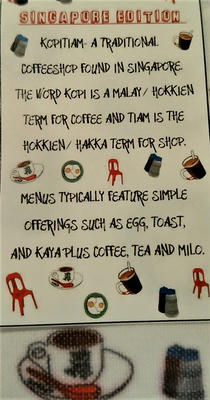 SINGAPORE EDITION
KOPITIAM- A TRADITIONAL
COFFEESHOP FOUND IN SINGAPORE.
THE WORD KOPI IS A MALAY/ HOKKIEN
TERM FOR COFFEE AND TIAM IS THE
HOKKIEN/ HAKKA TERM FOR SHOP.
MENUS TYPICALLY FEATURE SIMPLE
OFFERINGS SUCH AS EGG, TOAST,
AND KAYA PLUS COFFEE, TEA AND MILO.